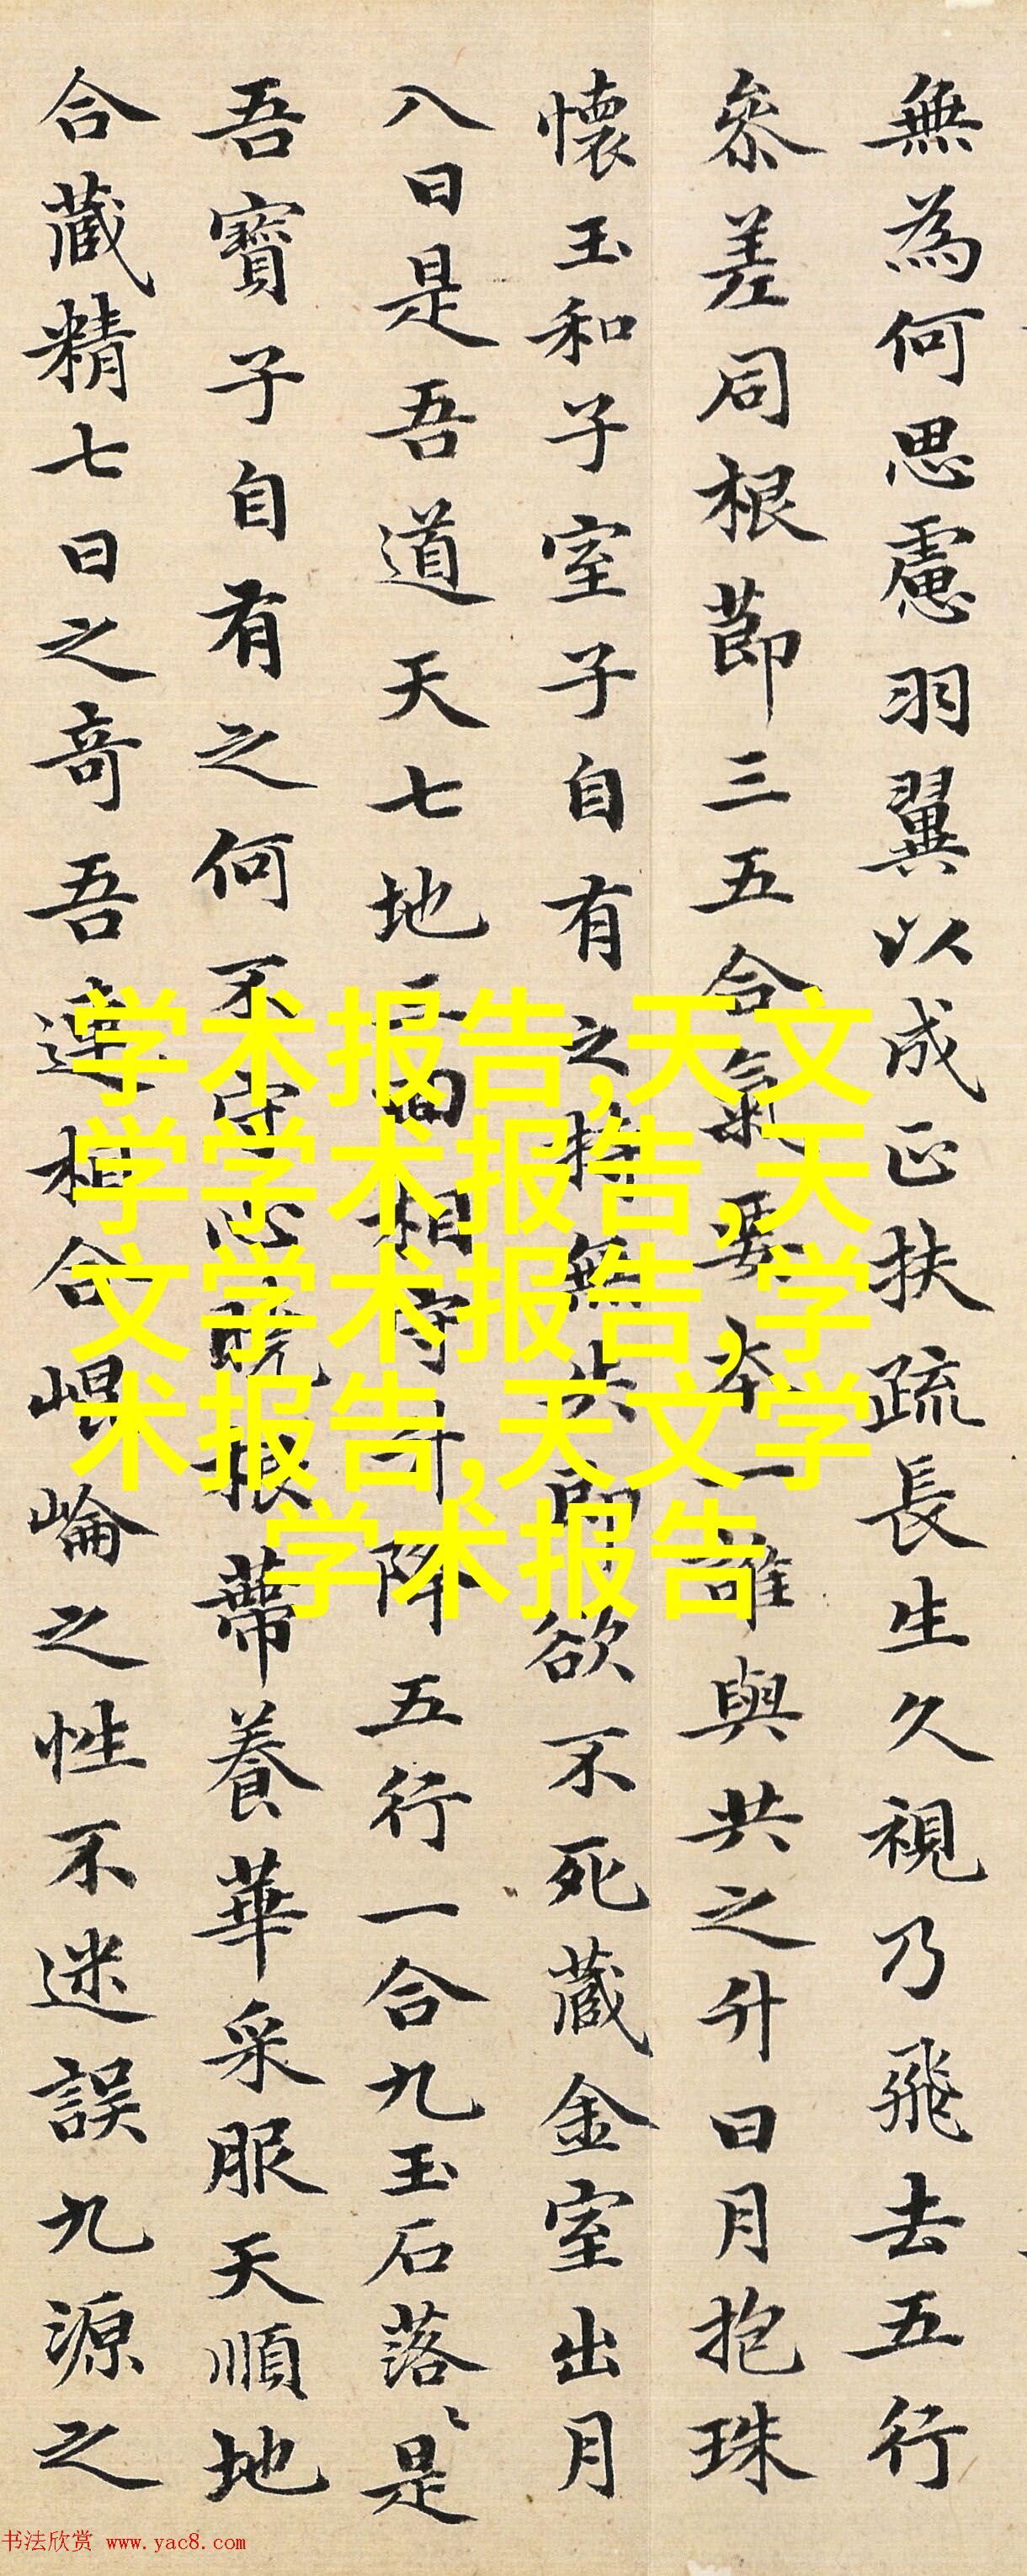 無為何思慮羽翼以成正扶疏長生久視乃飛去五行
參差同根莭三五合氣要本一誰與共之升日月抱珠
懷玉和子室子自有之持無失即欲不死藏金室出月
入日是吾道天七地三回相守升降五行一合九玉石落落是
吾寶子自有之何不守心曉根蔕養華采服天順地
合藏精七日之奇吾連相合崐崘之性不迷誤九源之
学术报告,天文
学学术报告,天
文学术报告,学
术报告,天文学
学术报告
书法欣赏 www.yac8.com